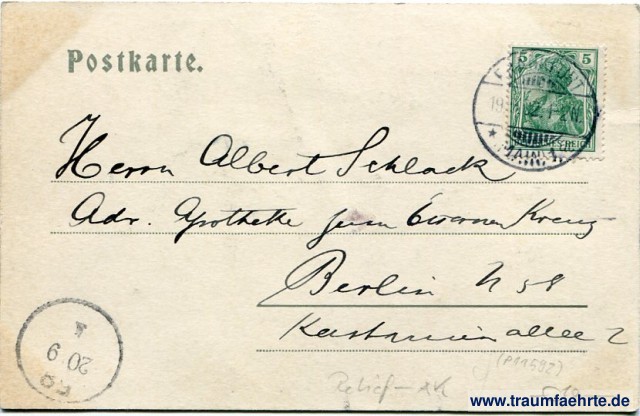 Postkarte.
5 5
FRANKFURT
19
* (MAIN) 1.
REICH
Herrn Albert Schlack
Adr. Apotheke zum Eisernen Kreuz
Berlin N 58
Kastanienallee 2
20 9
(P11592)
Relief-AK
www.traumfaehrte.de